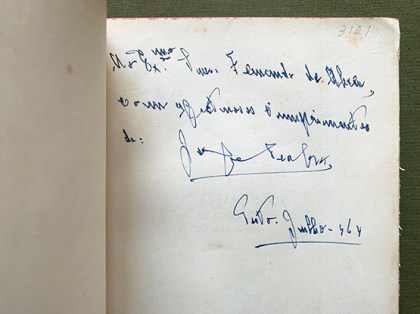 3121
Ao Ex.mo Snr. Fernando de Abreu,
com afectuosos cumprimentos
de:
Julho - 964